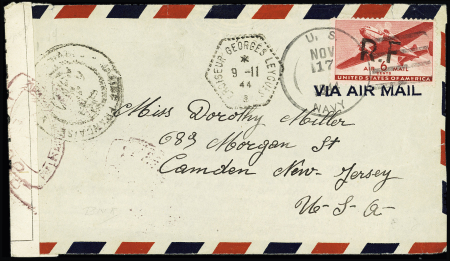 CROISEUR GEORGES LEYGUES
9-11
44
U.S.
NOV
17
NAVY
R.F
AIR 6 MAIL
CENTS
UNITED STATES OF AMERICA
VIA AIR MAIL
Miss Dorothy Miller
683 Morgan St
Camden New-Jersey
U-S-A-